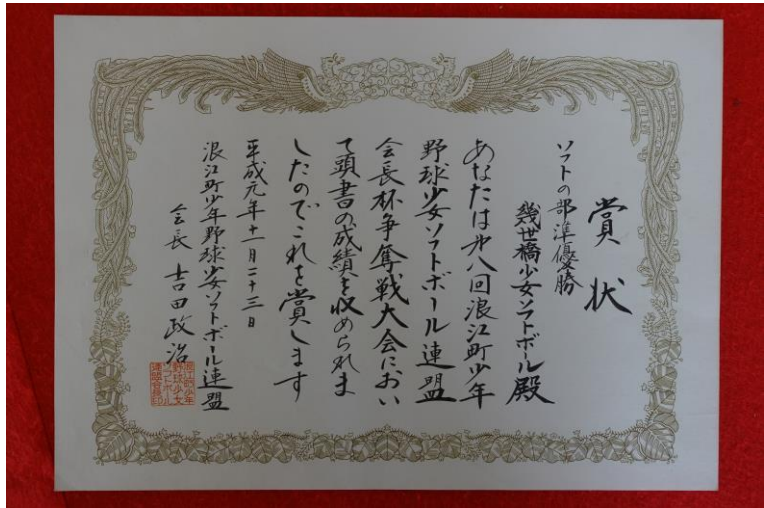 賞状
ソフトの部準優勝
幾世橋少女ソフトボール殿
あなたは㐧八回浪江町少年
野球少女ソフトボール連盟
会長杯争奪戦大会におい
て頭書の成績を収められま
したのでこれを賞します
平成元年十一月二十三日
浪江町少年野球少女ソフトボール連盟
会長 吉田政治
浪江町少年
野球少女
ソフトボール
連盟会長印